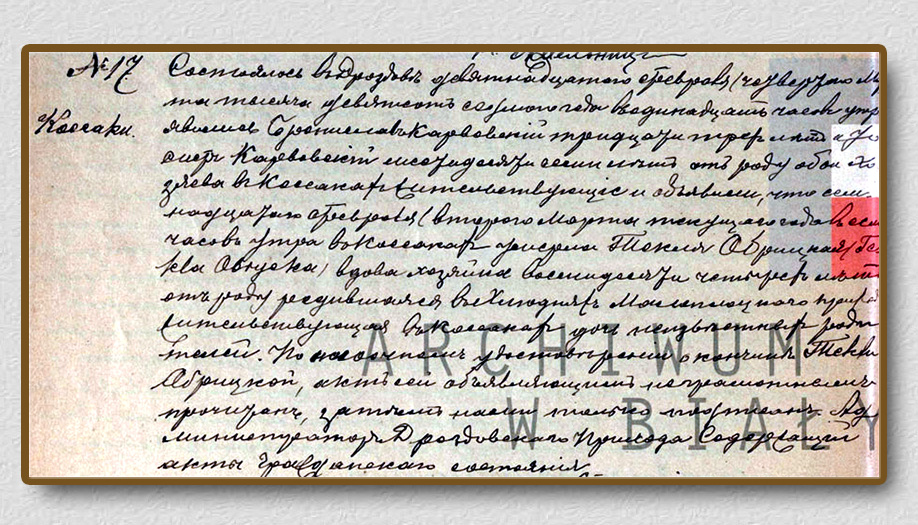 № 17
Коссаки.
Состоялось въ Дроздовѣ девятнадцатаго февраля (четвертаго Ма
та тысяча девятьсотъ седьмого года въ одинадцать часовъ утр
явились Брониславъ Карвовскій тридцати трехъ лѣтъ и
Карвовскій шестидесяти семи лѣтъ отъ роду оба хо
зяева въ Коссакахъ жительствующіе и объявили, что сем
надцатаго февраля (второго Марта текущаго года въ
часовъ утра въ Коссакахъ умерла Текля Обрицкая
вдова хозяина восмидесяти четырехъ лѣтъ
отъ роду родившаяся въ Хлюдняхъ Малоплоцкаго прихо
жительствующая въ Коссакахъ дочь неизвѣстныхъ роди
телей. По наочномъ удостовѣреніи о кончинѣ Текли
Обрицкой, актъ сей объявляющимъ неграмотнымъ
прочитанъ, затѣмъ нами только подписанъ. Ад
министраторъ Дроздовскаго Прихода Содержащій
акты гражданскаго состоянія
ARCHIWUM
W BIAŁY